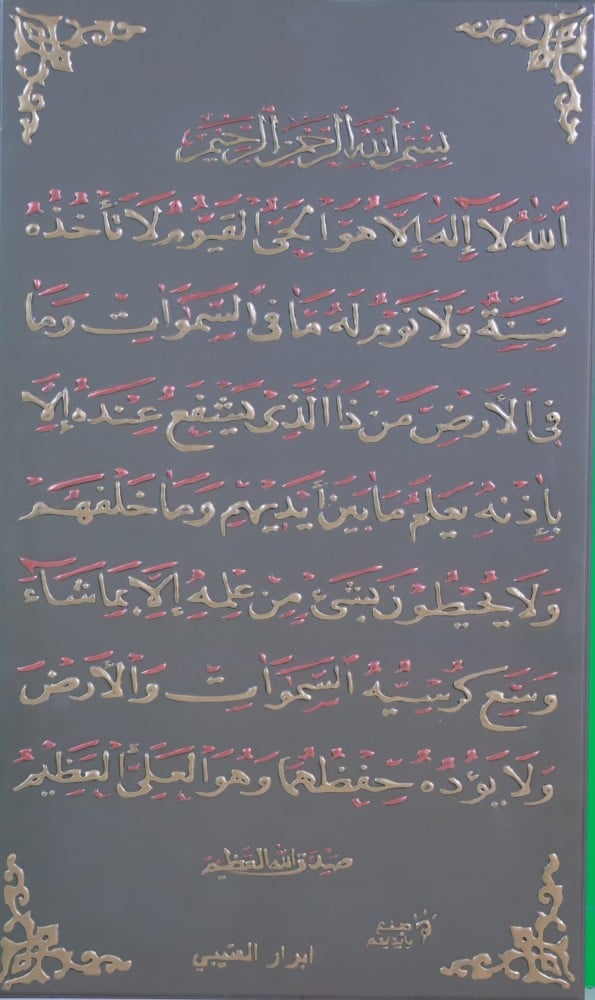 بِسْمِ اللَّهِ الرَّحْمَنِ الرَّحِيمِ
اللَّهُ لَا إِلَهَ إِلَّا هُوَ الْحَيُّ الْقَيُّومُ لَا تَأْخُذُهُ
سِنَةٌ وَلَا نَوْمٌ لَهُ مَا فِي السَّمَوَاتِ وَمَا
فِي الْأَرْضِ مَنْ ذَا الَّذِي يَشْفَعُ عِنْدَهُ إِلَّا
بِإِذْنِهِ يَعْلَمُ مَا بَيْنَ أَيْدِيهِمْ وَمَا خَلْفَهُمْ
وَلَا يُحِيطُونَ بِشَيْءٍ مِنْ عِلْمِهِ إِلَّا بِمَا شَاءَ
وَسِعَ كُرْسِيُّهُ السَّمَوَاتِ وَالْأَرْضَ
وَلَا يَؤُدُهُ حِفْظُهُمَا وَهُوَ الْعَلِيُّ الْعَظِيمُ
صدق الله العظيم
صنع
بأيديهم
ابرار العتيبي